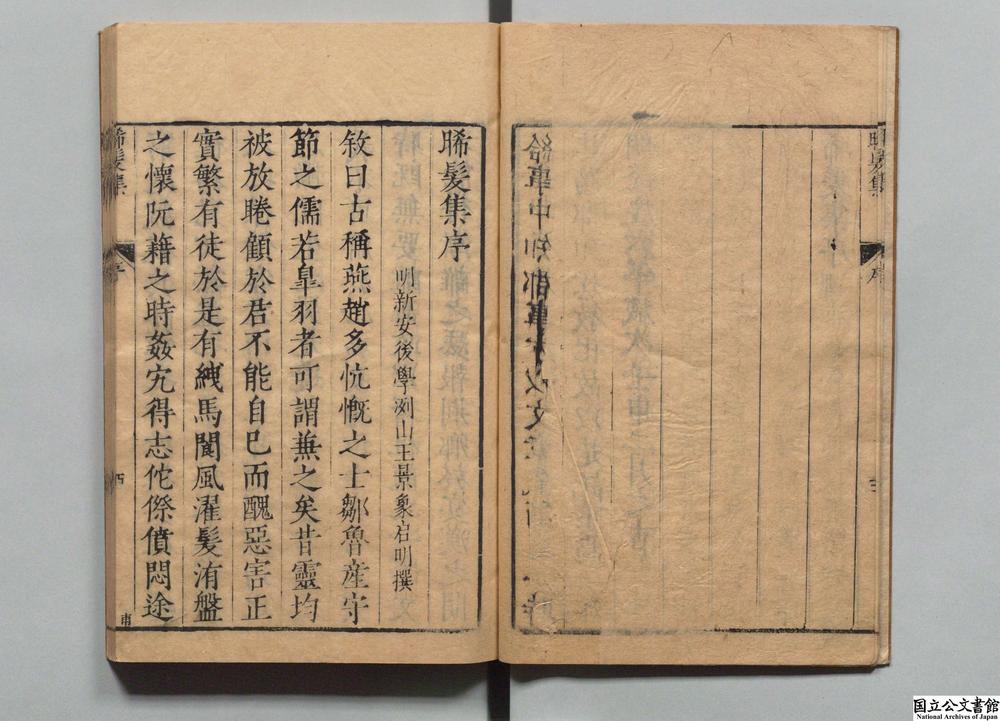 晞髮集
序
晞髮集序
明新安後學浰山王景象启明撰
敘曰古稱燕趙多忼慨之士鄒魯産守
節之儒若臯羽者可謂兼之矣昔靈均
被放睠顧於君不能自已而醜惡害正
實繁有徒於是有緤馬閬風濯髮洧盤
之懷阮藉之時姦宄得志侘傺憤悶途
晞髮集
序
四
国立公文書館
National Archives of Japan